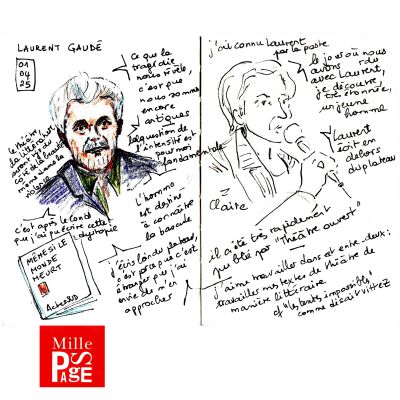 LAURENT GAUDÉ
01
04
25
Ce que la
tragédie
nous révèle,
c'est que
nous sommes
encore
antiques
la question de
l'intensité est
pour moi
fondamentale
le théâtre,
la littérature
du
côté de la beauté
même dans la
violence
c'est après le Covid
que j'ai pu écrire cette
dystopie
MÊME SI LE
MONDE
MEURT
Actes SUD
L'homme
est destiné
à connaître
la bascule
j'écris loin du plateau,
c'est pas que c'est
étranger que j'ai
envie de m'en
approcher
j'ai connu Laurent
par la poste
le jour où nous
avons rdv
avec Laurent,
je découvre,
très étonnée,
un jeune
homme
Laurent
écrit en
dehors
du plateau
Claire
il a été très rapidement
publié par "Théâtre ouvert"
j'aime travailler dans cet entre-deux:
travailler mes textes de théâtre de
manière littéraire
et "les bords impossibles"
comme disait Vittez
Mille
PAGES